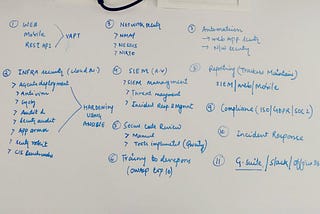 ① WEB
Mobile
REST API
VAPT
② INFRA security (Cloud
Agents deployment
Antivirus
Audit d
Security audit
App armor
CIS benchmarks
HARDENING
USING
③ Network security
NMAP
NESSUS
NIKTO
④ SIEM
SIEM management
Threat management
Incident Resp & Mgmnt
⑤ Secure Code Review
Manual
Tools implemented
⑥ Training to developers
(OWASP TOP 10)
⑦ Automation
→ Web App Security
→ N/W Security
Reporting (Trackers Maintain)
SIEM/Web/Mobile
⑨ Compliance (ISO/GDPR/SOC2)
⑩ Incident Response
⑪ G-suite/Slack/